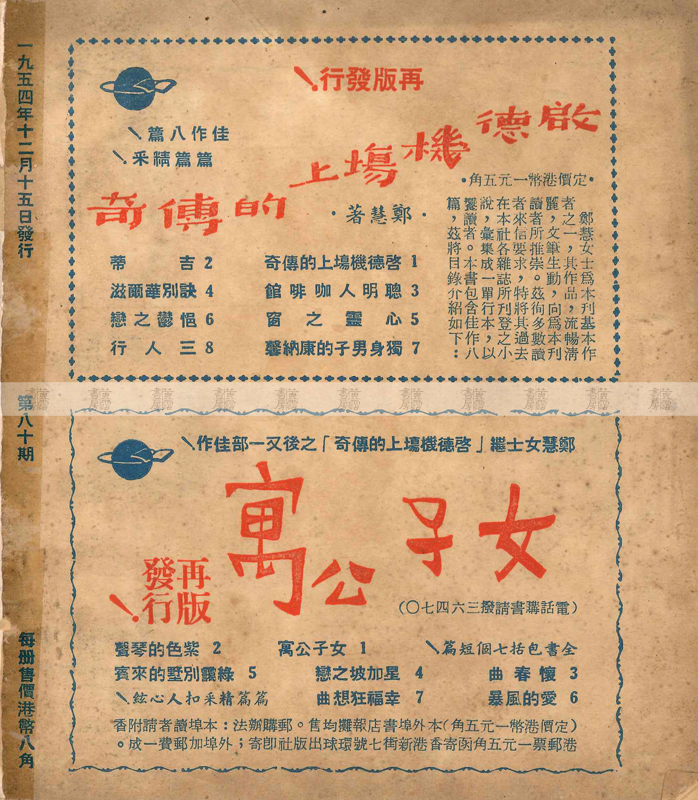 一九五四年十二月十五日發行
第八十期
每册售價港幣八角
再版發行！
佳作八篇！
篇篇精采！
啟德機場上的傳奇
·鄭慧著·
·定價港幣一元五角·
鄭慧女士為本刊基本作
者之一，其作品，流暢清
麗，文筆生動，向為本刊
讀者所推崇。茲徇多數讀
者來信要求，特將其過去
在本社各雜誌所刊登之小
說，彙集成一單行本，以
饗讀者。本書包含佳作八
篇，茲將目錄介紹如下：
1 啓德機場上的傳奇
2 吉蒂
3 聰明人咖啡館
4 訣別華爾滋
5 心靈之窗
6 悒鬱之戀
7 獨身男子的康納馨
8 三人行
鄭慧女士繼「啓德機場上的傳奇」之後又一部佳作！
女子公寓
再版發行！
（電話購書請撥三六四七〇）
全書包括七個短篇！
1 女子公寓
2 紫色的琴聲
3 懷春曲
4 星加坡之戀
5 綠霧別墅的來賓
6 愛的風暴
7 幸福狂想曲
篇篇精采扣人心絃！
（定價港幣一元五角）本外埠書店報攤均售。郵購辦法：本埠讀者請附香
港郵票一元五角函寄香港新街七號環球出版社即寄；外埠加郵費一成。